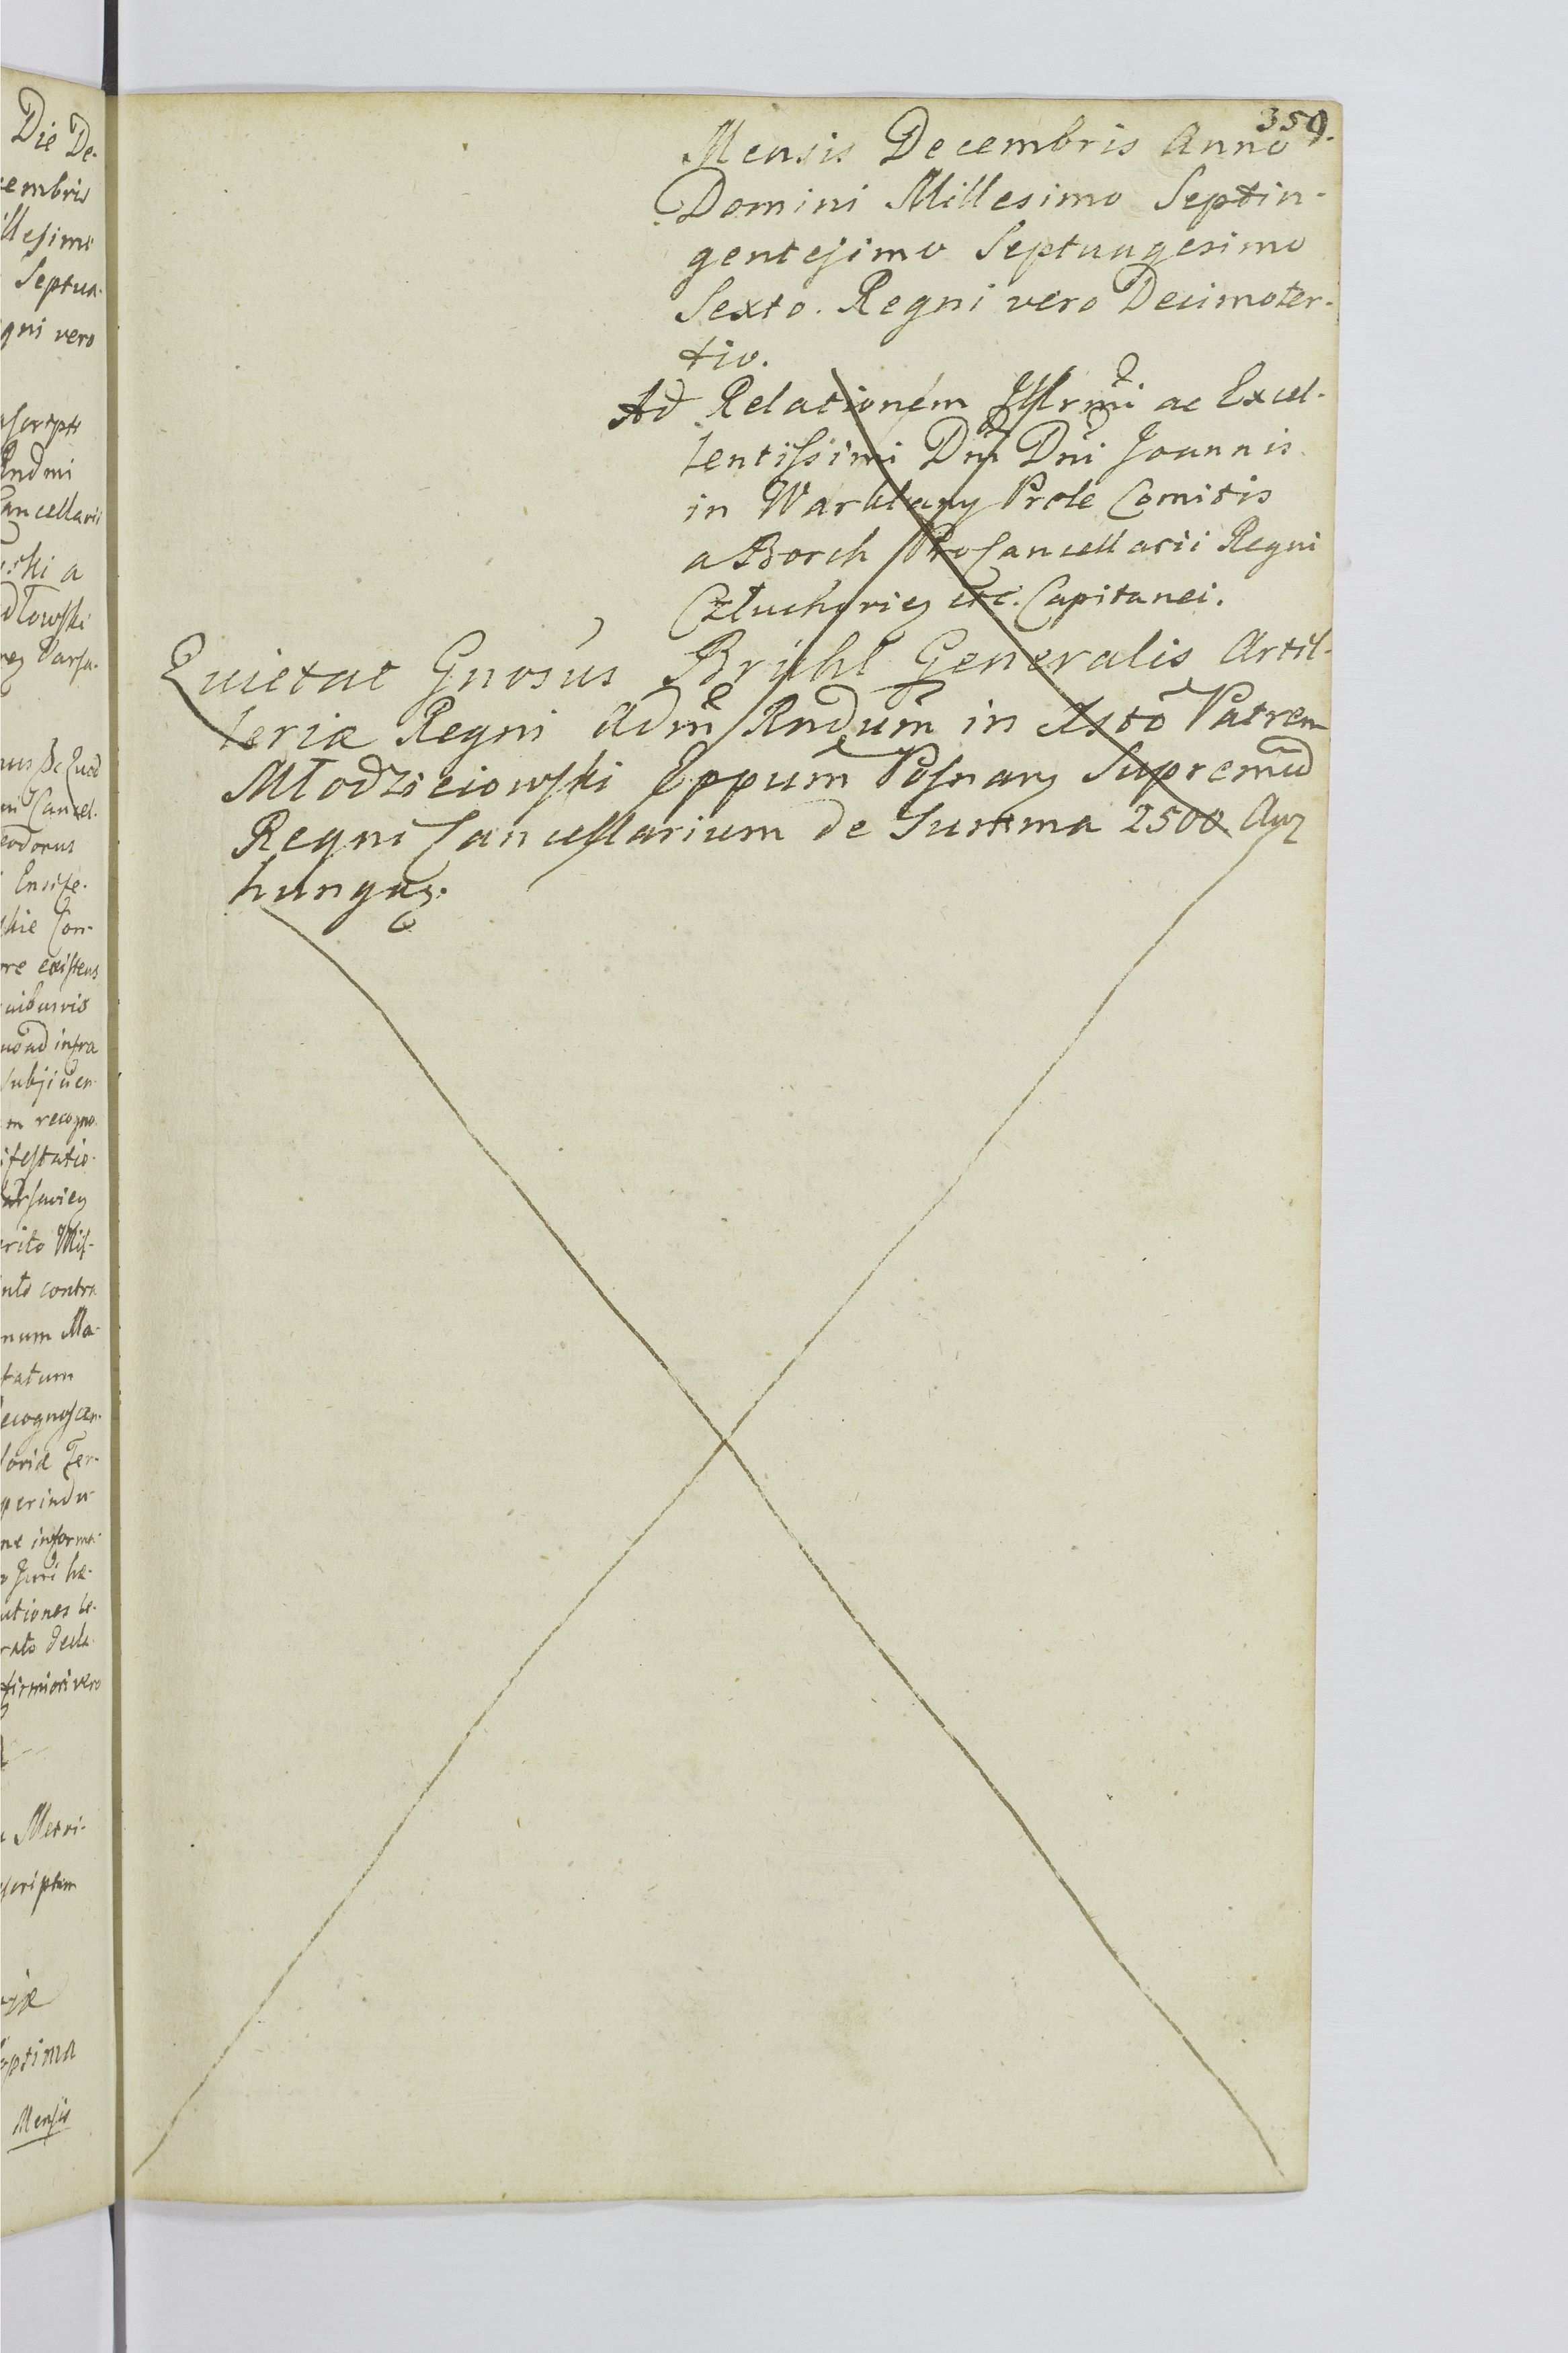 359.
Mensis Decembris Anno
Domini Millesimo Septin-
gentesimo Septuagesimo
Sexto. Regni vero Decimoter-
tio.
Ad Relationem Illrmi ac Excel-
lentissimi Dni Dni Joannis
in Warklany Prole Comitis
a Borch ProCancellarii Regni
Człuchovien etc. Capitanei.
Quietat Gnosus Brühl Generalis Artil-
leriæ Regni Adm Rndum in Xsto Patrem
Młodzieiowski Eppum Posnan Supremu
Regni Cancellarium de Summa 2500 Aur
hungar.
Die De-
cembris
illesimo
Septua-
gni vero
Rndmi
Cancellarii
ski a
dłowski
nus Sc Quod
Cancel-
eodorus
Ensife-
re existens
uibusvis
infra
recogno
ifestatio-
contra
num Ma-
tatum
ecognoscen-
Ter-
perindu-
ne informa-
Juri hæ-
utiones
firmiori vero
Metri-
scriptum
ptima
Mensis